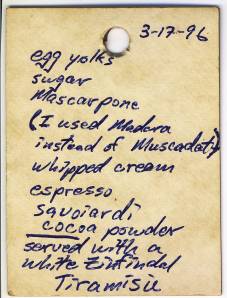 3-17-96
egg yolks
sugar
Mascarpone
(I used Madera
instead of Muscadat)
whipped cream
espresso
savoiardi
cocoa powder
served with a
white Zinfindal
Tiramisu